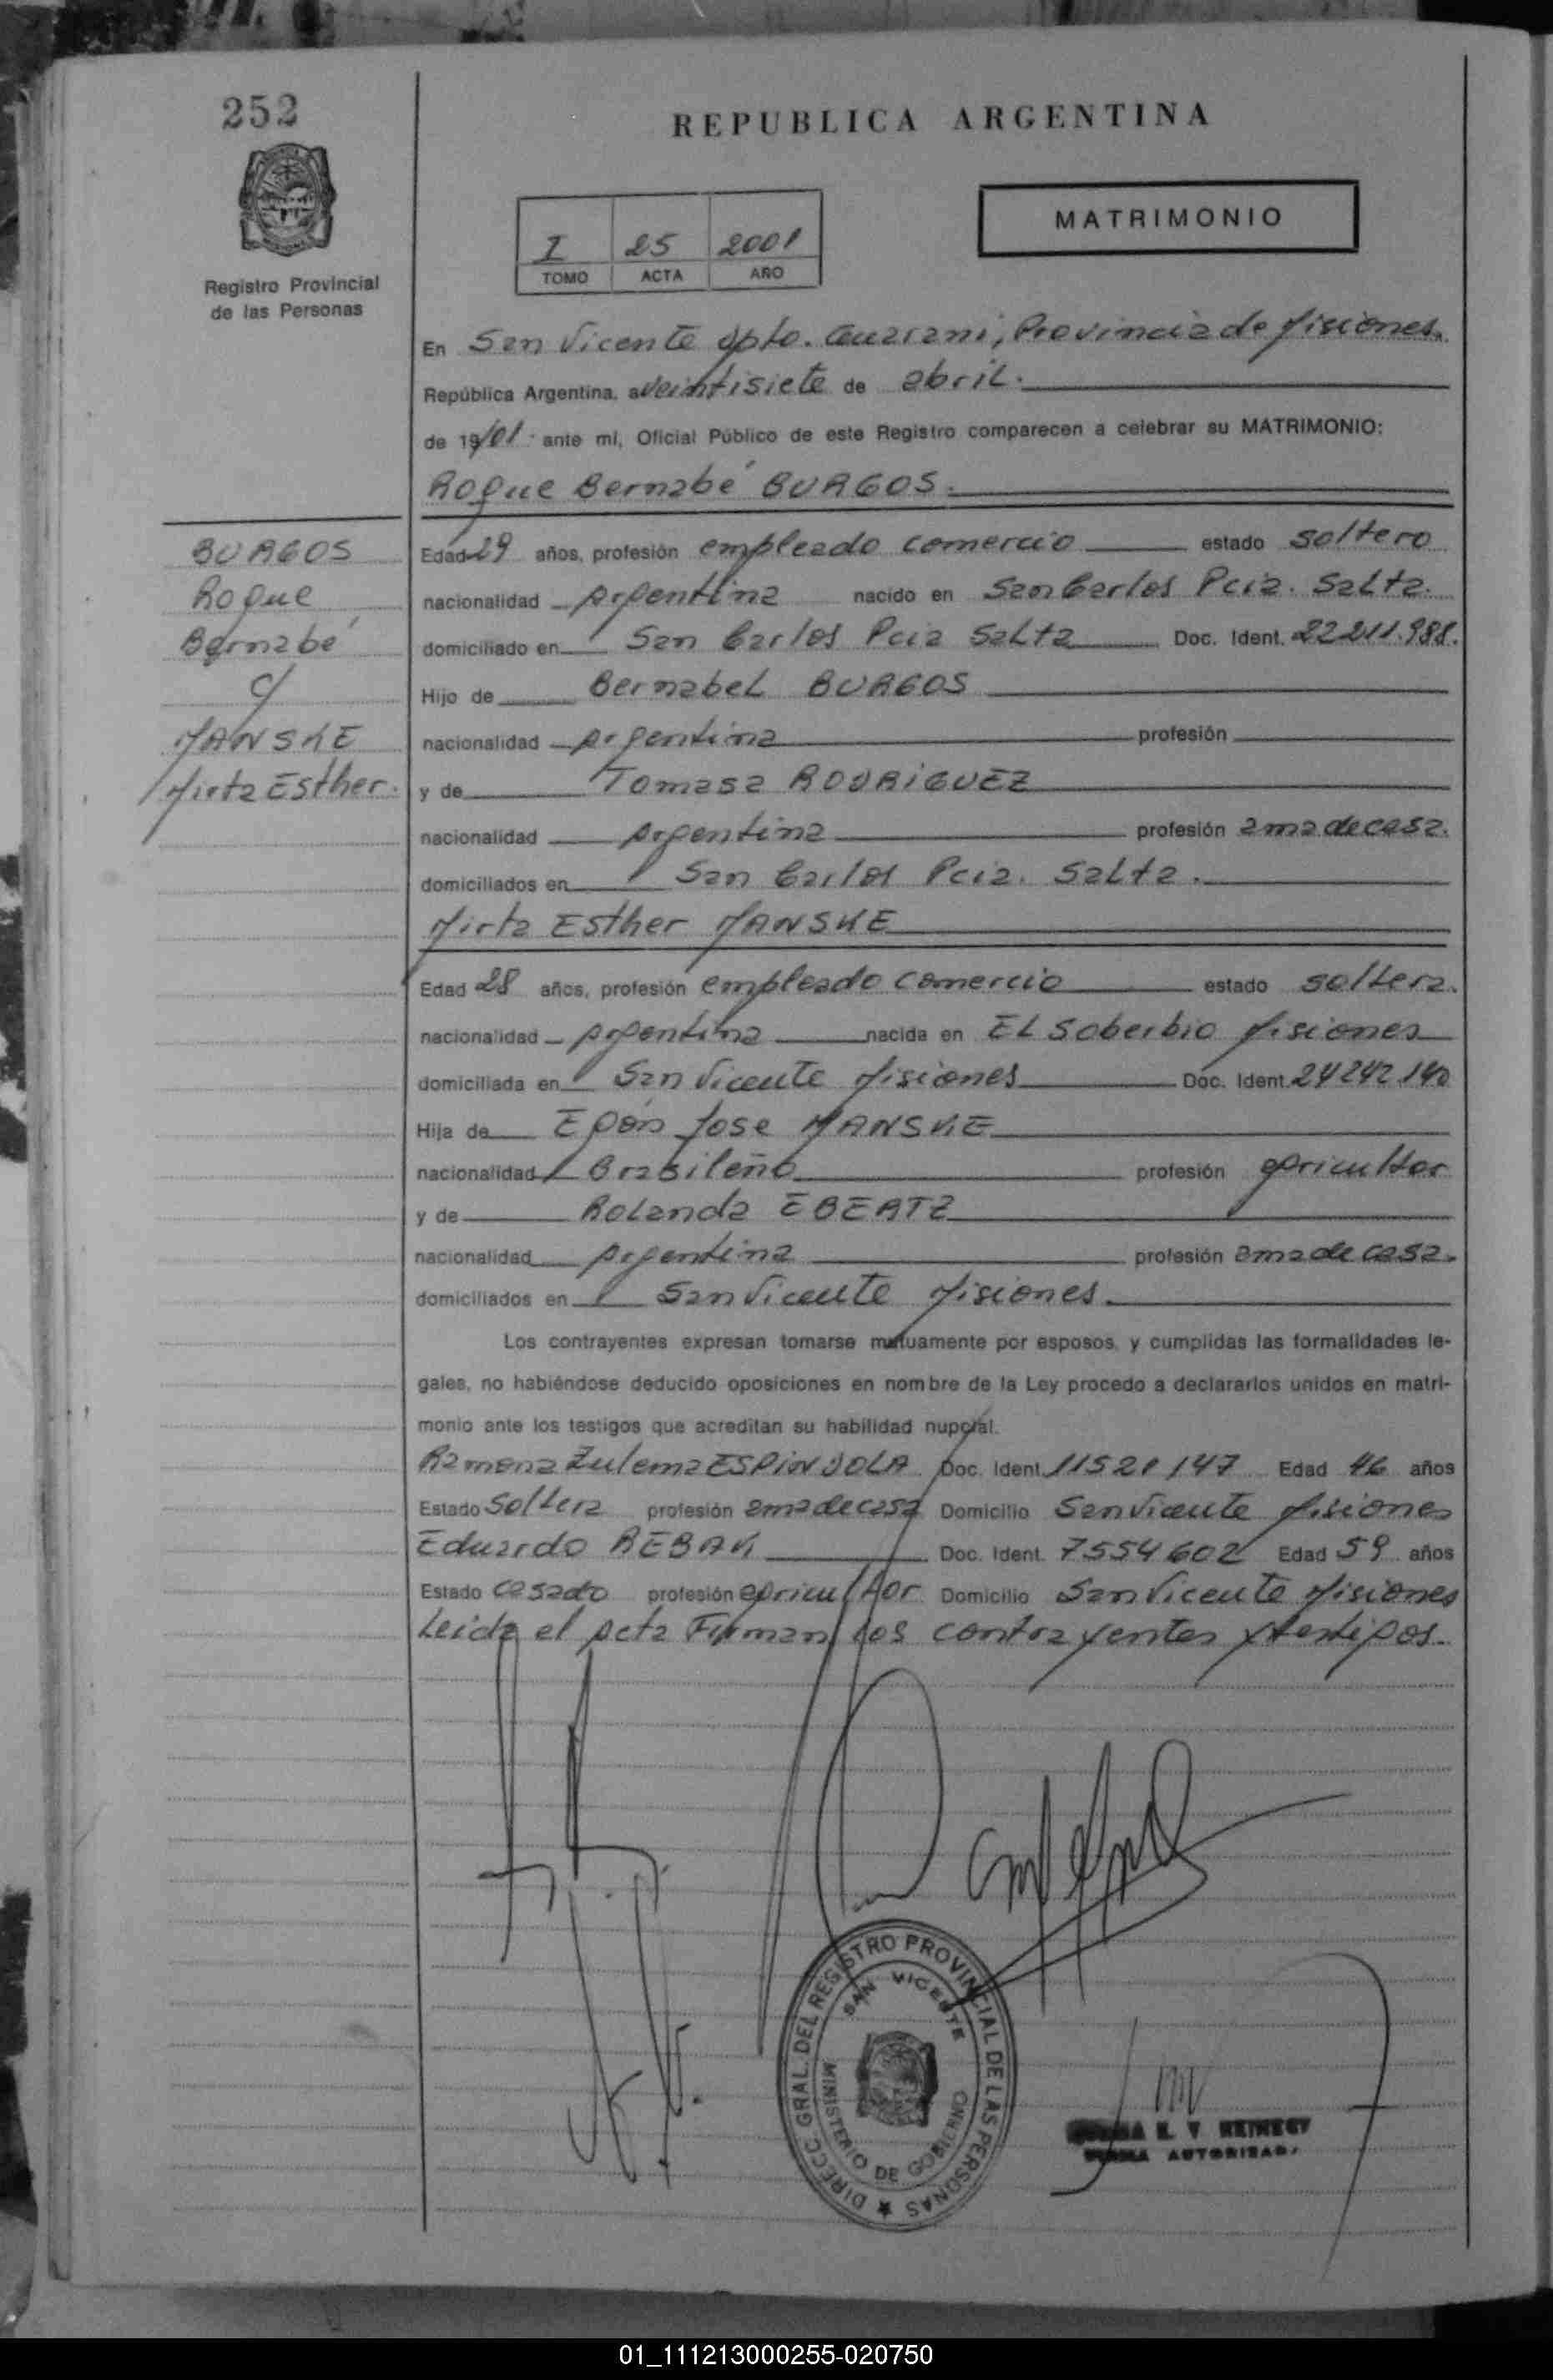 252
REPUBLICA ARGENTINA
Registro Provincial
de las Personas
I 25 2001
TOMO ACTA AÑO
MATRIMONIO
En San Vicente dpto. Guarani, Provincia de Misiones.
República Argentina, a veintisiete de abril.
de 19/01 ante mí, Oficial Público de este Registro comparecen a celebrar su MATRIMONIO:
Roque Bernabé BURGOS.
BURGOS
Roque
Bernabé
c/
MANSKE
Mirta Esther.
Edad 29 años, profesión empleado comercio estado soltero
nacionalidad Argentina nacido en San Carlos Pcia. Salta.
domiciliado en San Carlos Pcia Salta Doc. Ident. 22.211.988.
Hijo de Bernabel BURGOS
nacionalidad Argentina profesión
y de Tomasa RODRIGUEZ
nacionalidad Argentina profesión ama de casa.
domiciliados en San Carlos Pcia. Salta.
Mirta Esther MANSKE
Edad 28 años, profesión empleado comercio estado soltera.
nacionalidad Argentina nacida en EL Soberbio Misiones
domiciliada en San Vicente Misiones Doc. Ident. 24242.140
Hija de Egón Jose MANSKE
nacionalidad Brasileño profesión agricultor
y de Rolanda EBERTZ
nacionalidad Argentina profesión ama de casa.
domiciliados en San Vicente Misiones.
Los contrayentes expresan tomarse mutuamente por esposos, y cumplidas las formalidades le-
gales, no habiéndose deducido oposiciones en nombre de la Ley procedo a declararlos unidos en matri-
monio ante los testigos que acreditan su habilidad nupcial.
Ramona Zulema ESPINDOLA Doc. Ident. 11521147 Edad 46 años
Estado Soltera profesión ama de casa Domicilio San Vicente Misiones
Eduardo REBAK Doc. Ident. 7554602 Edad 59 años
Estado casado profesión agricultor Domicilio San Vicente Misiones
Leida el Acta Firman los contrayentes y testigos.
DIRECC. GRAL. DEL REGISTRO PROVINCIAL DE LAS PERSONAS
SAN VICENTE
MINISTERIO DE GOBIERNO
AUTORIZADA
01_111213000255-020750